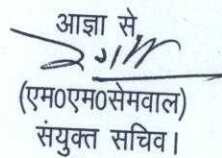 आज्ञा से
(एम0एम0सेमवाल)
संयुक्त सचिव।